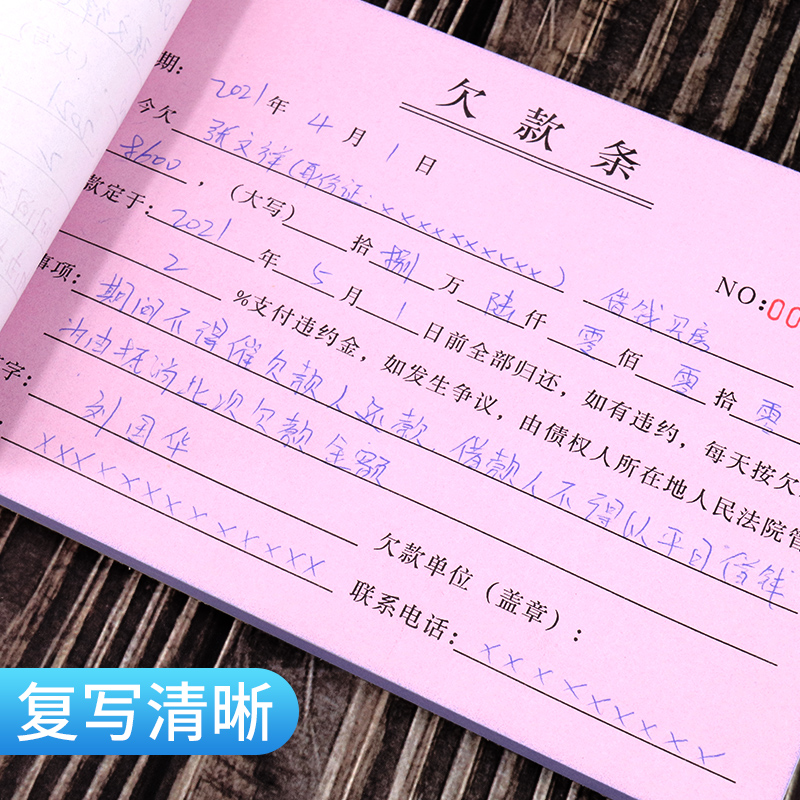 欠款条
NO:00
期: 2021年4月1日
今欠 张文祥(身份证:xxxxxxxxxx) 借钱买房
8600,(大写) 拾捌万陆仟零佰零拾零
款定于:2021年5月1日前全部归还,如有违约,每天按欠
2%支付违约金,如发生争议,由债权人所在地人民法院管
事项: 期间不得催欠款人还款,借款人不得以平日借钱
抵消此次欠款金额
字: 刘国华
欠款单位(盖章):
: xxxxxxxxxxxxx
联系电话: xxxxxxxxx
复写清晰